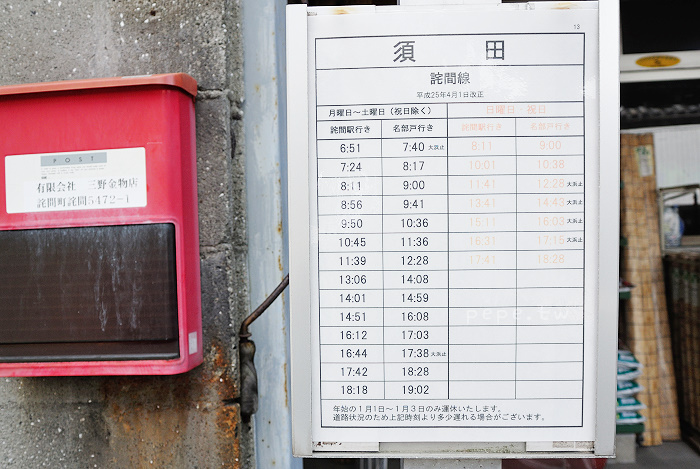 POST
有限会社 三野金物店
詫間町詫間5472-1
13
須田
詫間線
平成25年4月1日改正
月曜日～土曜日（祝日除く） 日曜日・祝日
詫間駅行き 名部戸行き 詫間駅行き 名部戸行き
6:51 7:40 大浜止 8:11 9:00
7:24 8:17 10:01 10:38
8:11 9:00 11:41 12:28 大浜止
8:56 9:41 13:41 14:43 大浜止
9:50 10:36 15:11 16:03 大浜止
10:45 11:36 16:31 17:15 大浜止
11:39 12:28 17:41 18:28
13:06 14:08
14:01 14:59
14:51 16:08
16:12 17:03
16:44 17:38 大浜止
17:42 18:28
18:18 19:02
年始の1月1日～1月3日のみ運休いたします。
道路状況のため上記時刻より多少遅れる場合がございます。
pepe.tw